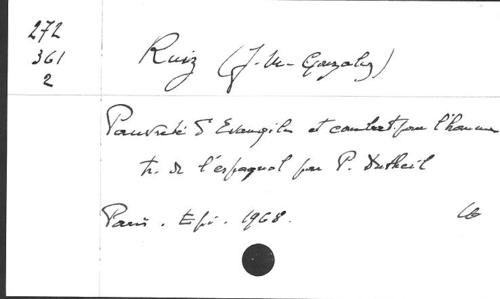 272
361
2
Ruiz (J.-M. Gonzalez)
Pauvreté d'Evangile et combat pour l'homme
tr. de l'espagnol par P. Dutheil
Paris. Epi. 1968.